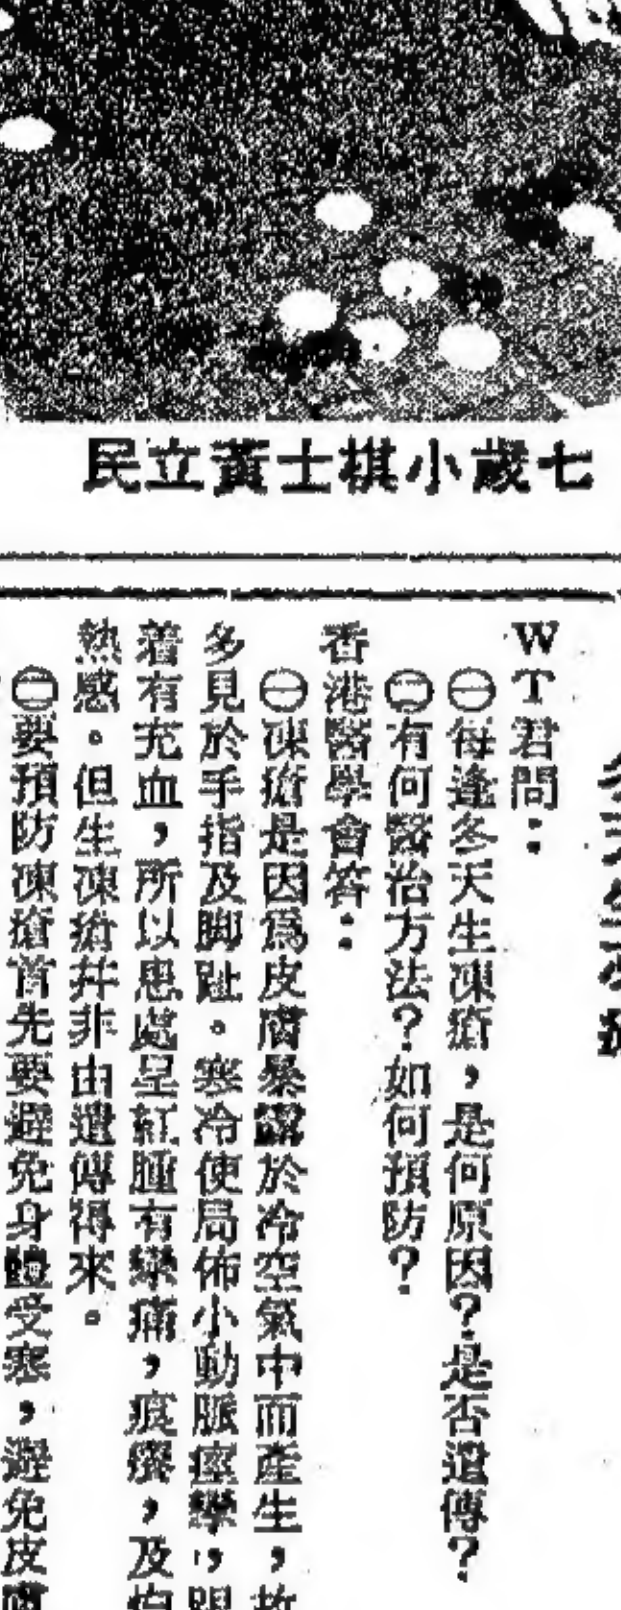 七歲小棋士黃立民
WT君問：
㊀每逢冬天生凍瘡，是何原因？是否遺傳？
㊁有何醫治方法？如何預防？
香港醫學會答：
㊀凍瘡是因為皮膚暴露於冷空氣中而產生，故
多見於手指及脚趾。寒冷使局佈小動脈痙攣，跟
着有充血，所以患處呈紅腫有攣痛，痕癢，及灼
熱感。但生凍瘡幷非由遺傳得來。
㊁要預防凍瘡首先要避免身體受寒，避免皮膚